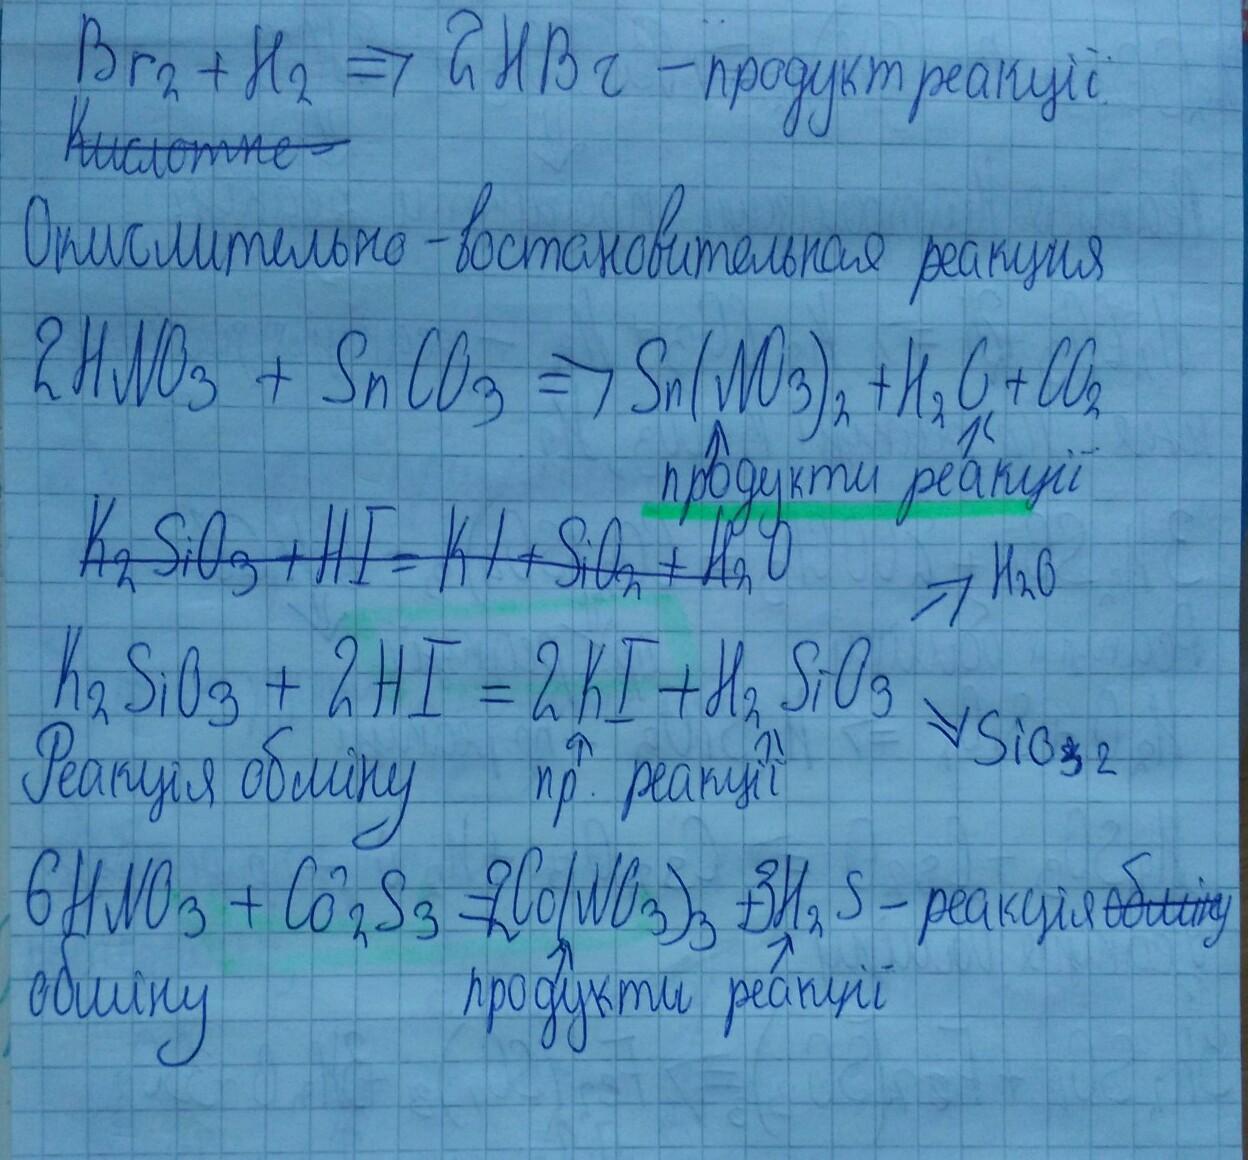 Br2 + H2 => 2HBr - продукт реакції
Кислотне -
Окислительно - востановительная реакция
2HNO3 + SnCO3 => Sn(NO3)2 + H2O + CO2
продукти реакції
K2SiO3 + HI = KI + SiO2 + H2O
=> H2O
K2SiO3 + 2HI = 2KI + H2SiO3
=> SiO2
Реакція обміну пр. реакції
6HNO3 + Co2S3 = 2Co(NO3)3 + 3H2S - реакція обміну
обміну продукти реакції